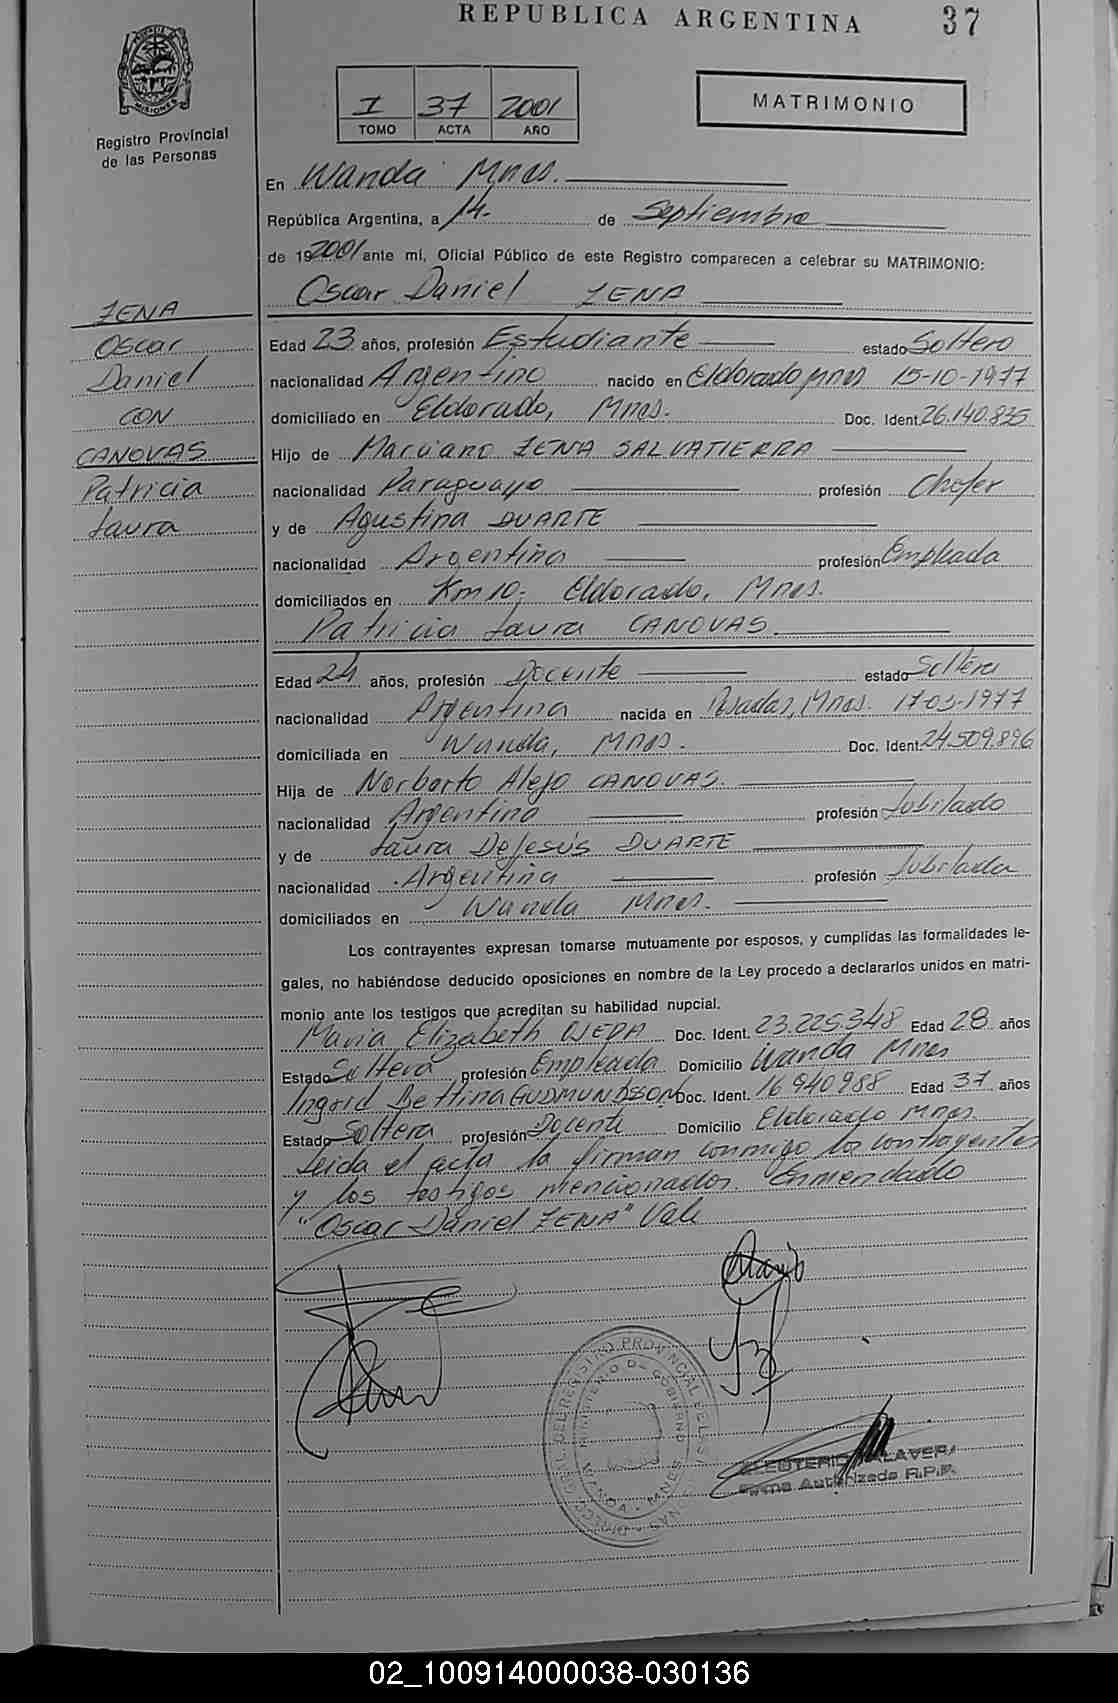 REPUBLICA ARGENTINA 37
MISIONES
Registro Provincial
de las Personas
I 37 2001
TOMO ACTA AÑO
MATRIMONIO
En Wanda Mnes.
República Argentina, a 14. de Septiembre
de 192001 ante mí, Oficial Público de este Registro comparecen a celebrar su MATRIMONIO:
Oscar Daniel ZENA
ZENA
Oscar
Daniel
CON
CANOVAS
Patricia
Laura
Edad 23 años, profesión Estudiante estado Soltero
nacionalidad Argentino nacido en Eldorado Mnes 15-10-1977
domiciliado en Eldorado, Mnes. Doc. Ident. 26.140.835
Hijo de Marciano ZENA SALVATIERRA
nacionalidad Paraguayo profesión Chofer
y de Agustina DUARTE
nacionalidad Argentina profesión Empleada
domiciliados en Km 10; Eldorado, Mnes.
Patricia Laura CANOVAS
Edad 24 años, profesión Docente estado Soltera
nacionalidad Argentina nacida en Posadas, Mnes. 17-03-1977
domiciliada en Wanda, Mnes. Doc. Ident. 24.509.896
Hija de Norberto Alejo CANOVAS.
nacionalidad Argentino profesión Jubilado
y de Laura DeJesús DUARTE
nacionalidad Argentina profesión Jubilada
domiciliados en Wanda Mnes.
Los contrayentes expresan tomarse mutuamente por esposos, y cumplidas las formalidades le-
gales, no habiéndose deducido oposiciones en nombre de la Ley procedo a declararlos unidos en matri-
monio ante los testigos que acreditan su habilidad nupcial.
Maria Elizabeth OJEDA Doc. Ident. 23.225.348 Edad 28 años
Estado Soltera profesión Empleada Domicilio Wanda Mnes
Ingrid Bettina GUDMUNDSSON Doc. Ident. 16 940 988 Edad 37 años
Estado Soltera profesión Docente Domicilio Eldorado Mnes.
Leida el acta la firman conmigo los contrayentes
y los testigos mencionados. Enmendado
"Oscar Daniel ZENA" Vale
MINISTERIO DE GOBIERNO
WANDA - MNES
ELEUTERIO TALAVERA
Firma Autorizada R.P.P.
02_100914000038-030136